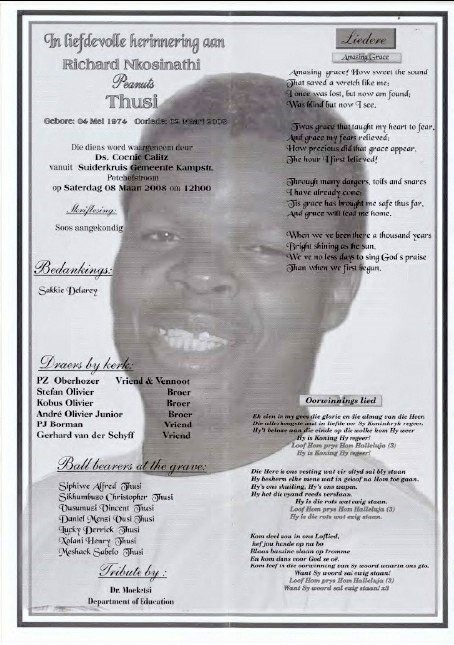 In liefdevolle herinnering aan
Richard Nkosinathi
Peanuts
Thusi
Gebore: 06 Mei 1974 Oorlede: Maart 2008
Die diens word waargeneem deur
Ds. Coenie Calitz
vanuit Suiderkruis Gemeente Kampstr.
Potchefstroom
op Saterdag 08 Maar 2008 om 12h00
Skriflesing:
Soos aangekondig
Bedankings:
Sakkie Delarey
Draers by kerk:
PZ Oberhozer Vriend & Vennoot
Stefan Olivier Broer
Kobus Olivier Broer
André Olivier Junior Broer
PJ Borman Vriend
Gerhard van der Schyff Vriend
Ball bearers at the grave:
Siphiwe Alfred Thusi
Sikhumbuzo Christopher Thusi
Vusumuzi Vincent Thusi
Daniel Menzi Vusi Thusi
Lucky Derrick Thusi
Xolani Henry Thusi
Meshack Sabelo Thusi
Tribute by :
Dr. Moeketsi
Department of Education
Liedere
Amazing Grace
Amazing grace! How sweet the sound
That saved a wretch like me;
I once was lost, but now am found;
Was blind but now I see.
'Twas grace that taught my heart to fear,
And grace my fears relieved;
How precious did that grace appear,
The hour I first believed!
Through many dangers, toils and snares
I have already come;
Tis grace has brought me safe thus far,
And grace will lead me home.
When we've been there a thousand years
Bright shining as the sun,
We've no less days to sing God's praise
Than when we first begun.
Oorwinnings lied
Ek sien in my gees die glorie en die almag van die Heer.
Die allerhoogste wat in liefde oor Sy Koninkryk regeer.
Hy't belowe aan die einde op die wolke kom Hy weer
Hy is Koning Hy regeer!
Loof Hom prys Hom Halleluja (3)
Hy is Koning Hy regeer!
Die Here is ons vesting wat vir altyd sal bly staan
Hy beskerm elke mens wat in geloof na Hom toe gaan.
Hy's ons skuiling, Hy's ons wapen,
Hy het die vyand reeds verslaan.
Hy is die rots wat ewig staan.
Loof Hom prys Hom Halleluja (3)
Hy is die rots wat ewig staan.
Kom deel nou in ons Loflied,
hef jou hande op na bo
Blaas basuine slaan op tromme
En kom dans voor God se oë.
Kom leef in die oorwinning van Sy woord waarin ons glo.
Want Sy woord sal ewig staan!
Loof Hom prys Hom Halleluja (3)
Want Sy woord sal ewig staan! x3